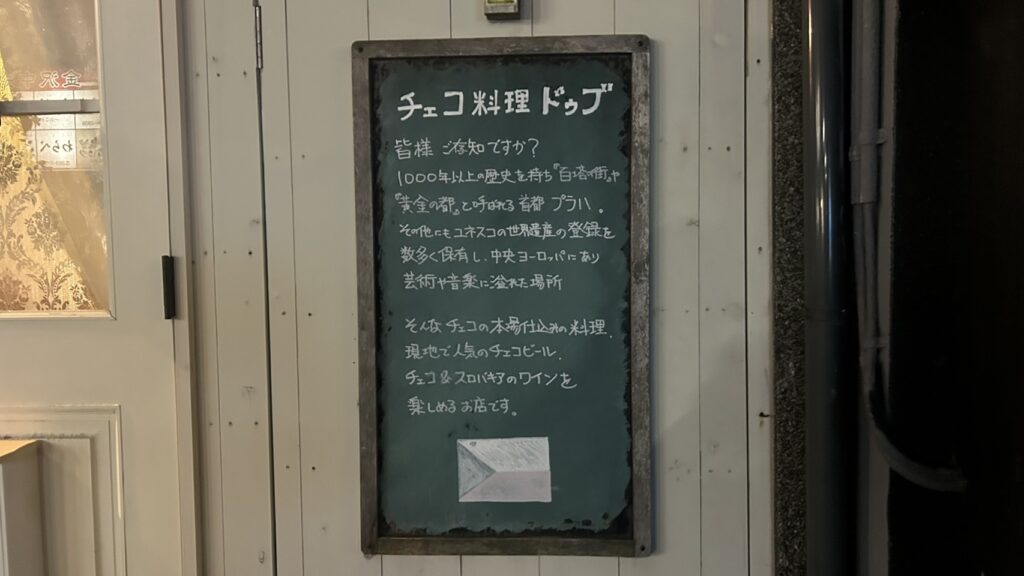 チェコ料理 ドゥブ
皆様 ご存知ですか?
1000年以上の歴史を持ち『百塔の街』や
『黄金の都』と呼ばれる 首都 プラハ。
その他にも ユネスコの世界遺産の登録を
数多く保有し、中央ヨーロッパにあり
芸術や音楽に溢れた場所
そんな チェコの本場仕込みの料理、
現地で人気のチェコビール、
チェコ&スロバキアのワインを
楽しめるお店です。
金沢
わらべ